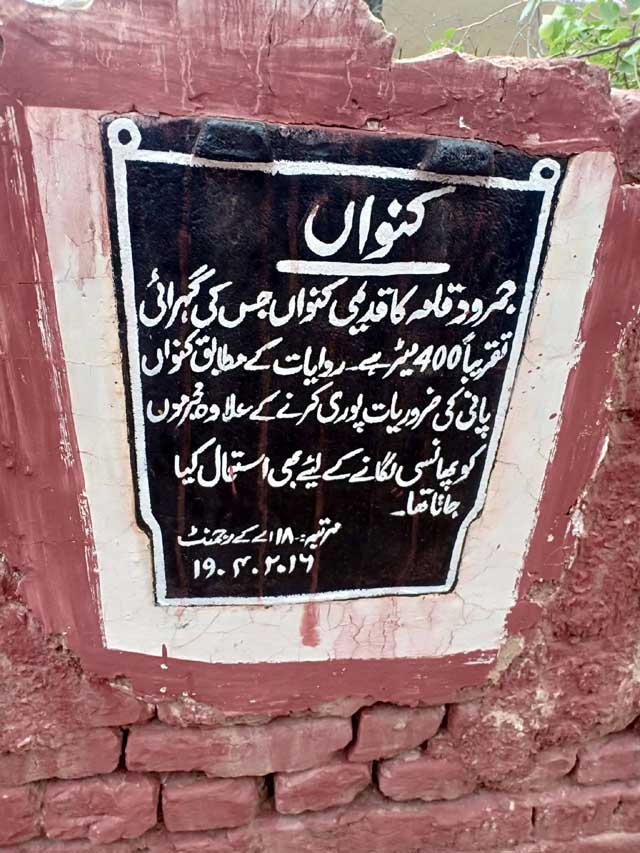 کنواں
جمرود قلعہ کا قدیمی کنواں جس کی گہرائی
تقریباً 400 میٹر ہے۔ روایات کے مطابق کنواں
پانی کی ضروریات پوری کرنے کے علاوہ مجرموں
کو پھانسی لگانے کے لیئے بھی استعمال کیا
جاتا تھا۔
مرتبہ:۔ ۱۸ اے کے رجمنٹ
۱۹۔۴۔۲۰۱۶